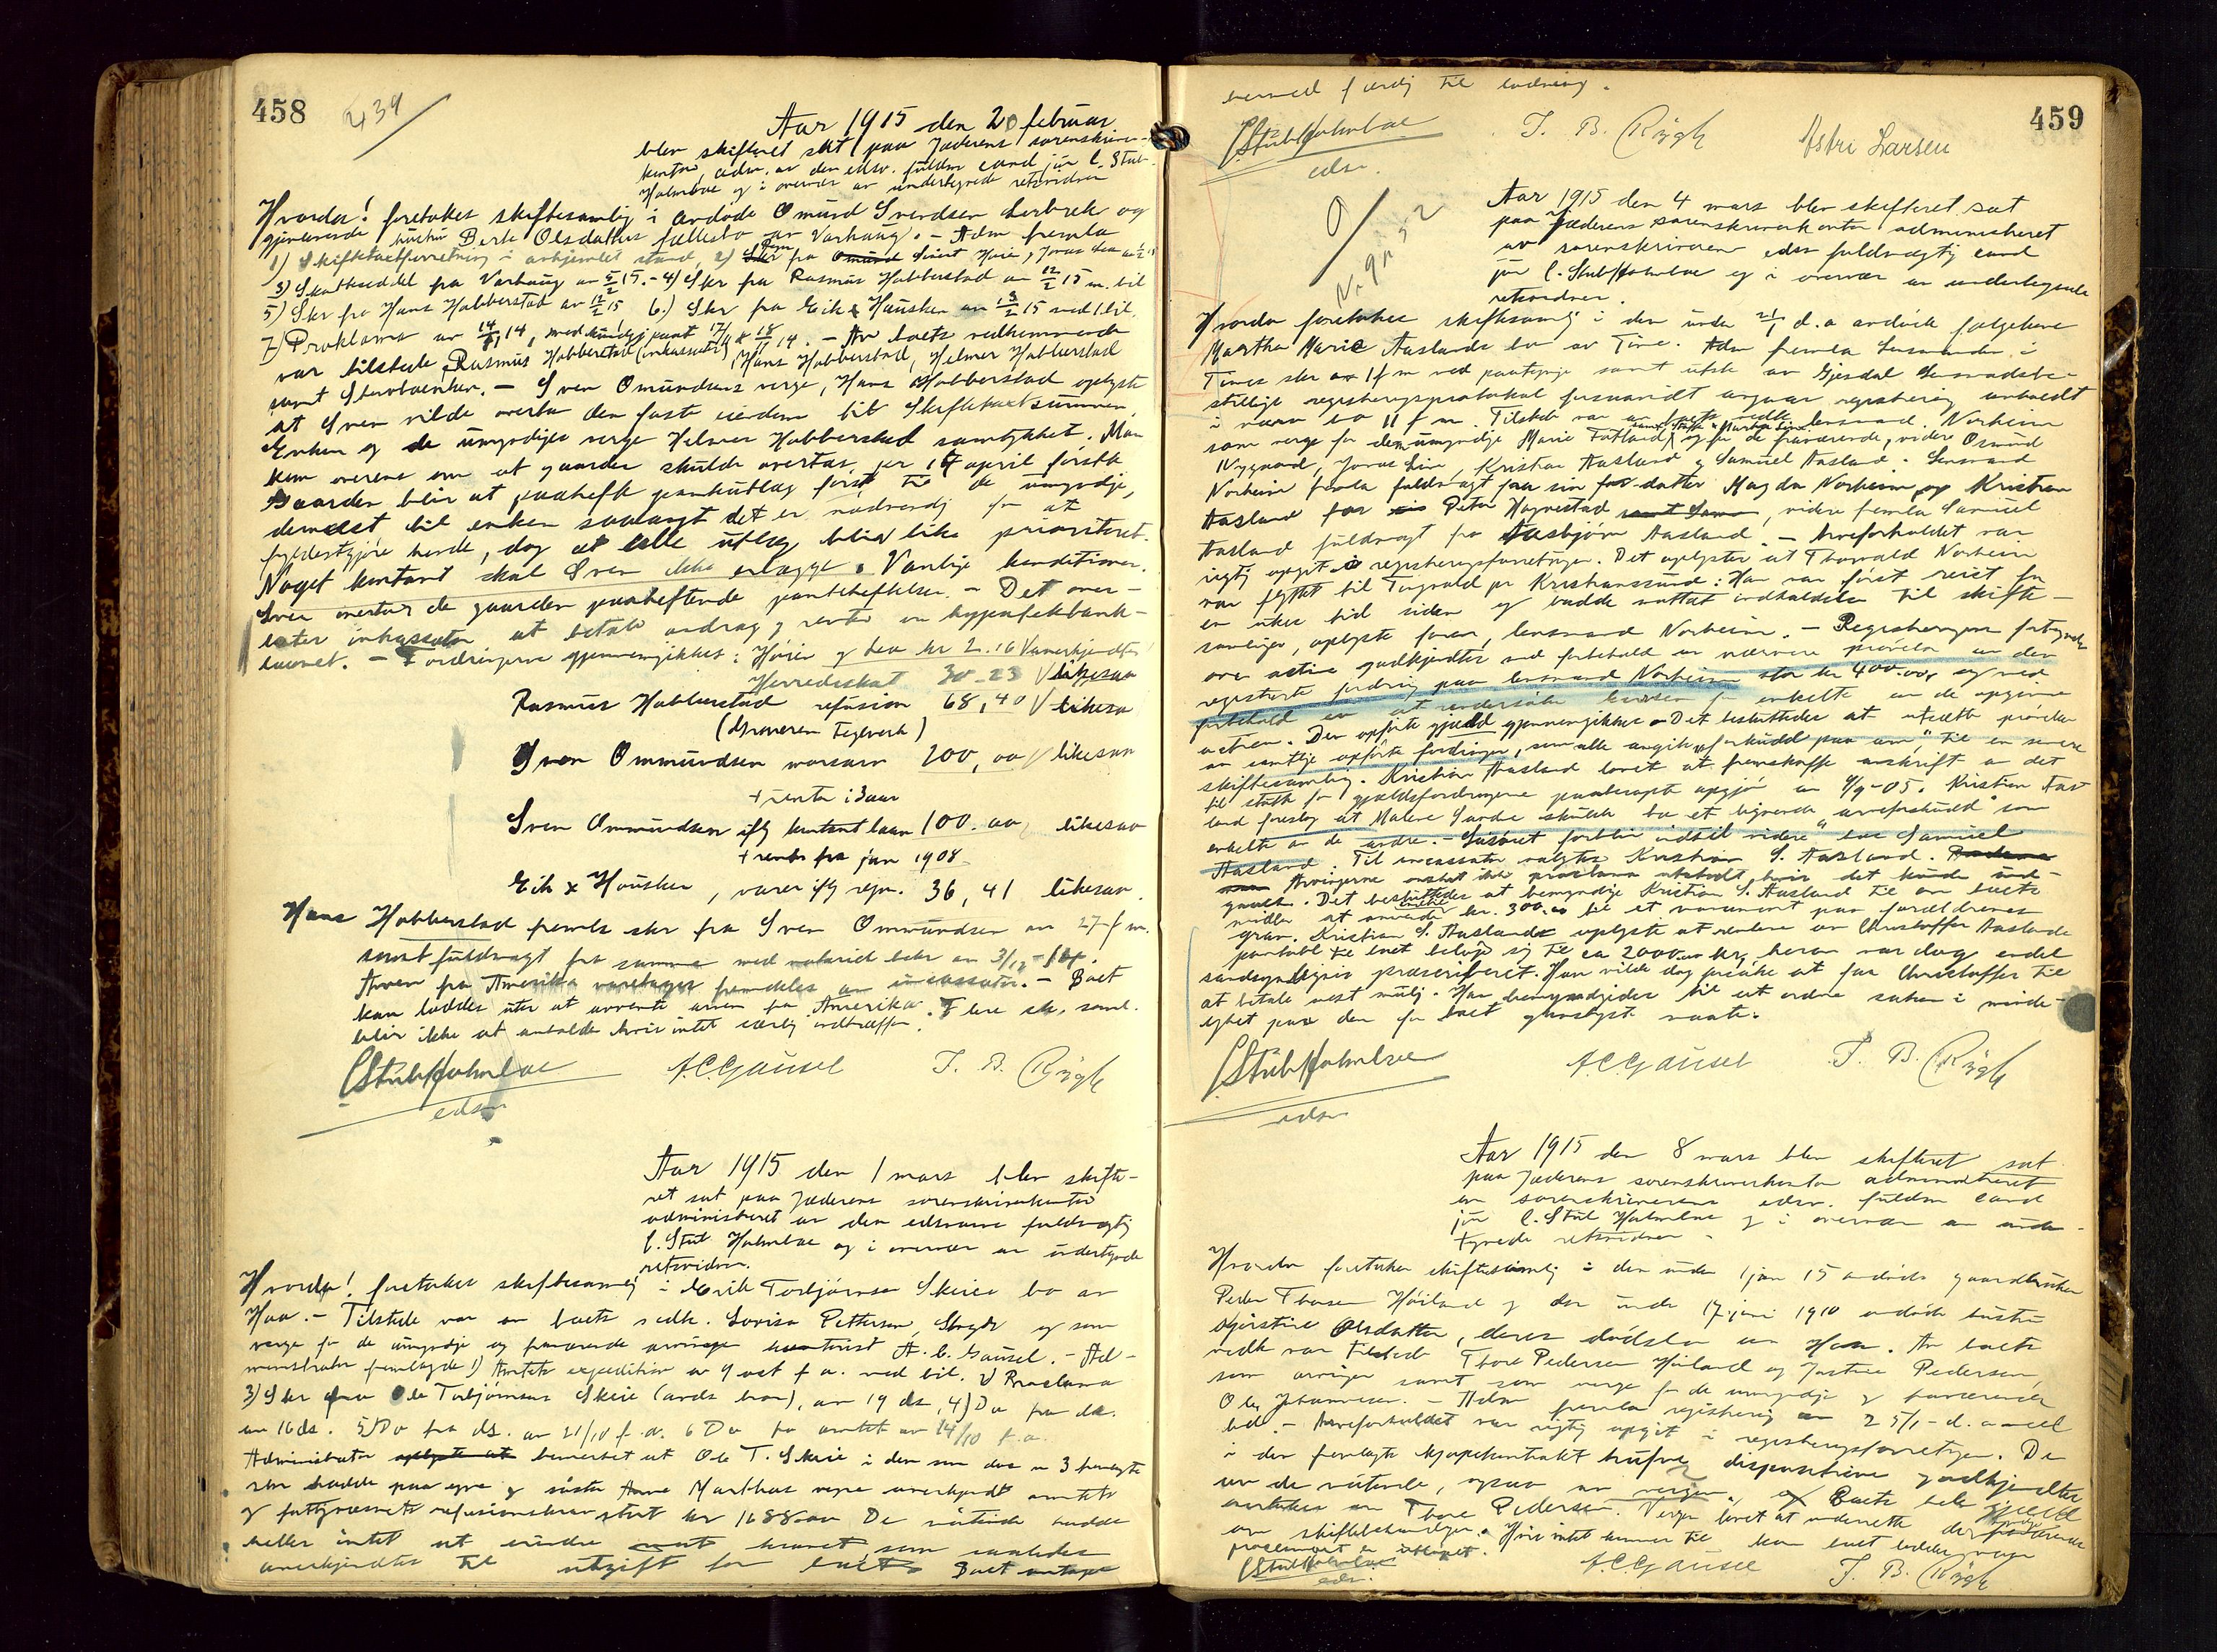 458
439
Aar 1915 den 20 februar
blev skifteret sat paa Jæderens sorenskriver-
kontor, adm. av den edsv. fuldm cand jur C. Stub-
Holmboe og i overvær av undertegnede retsvidner
Hvorda! foretokes skiftesamling i avdøde Omund Svendsen Lerbrek og
gjenlevende hustru Berte Olsdatters fællesbo av Varhaug. - Adm fremla
1) Skiftetaxtforretning i avhjemlet stand, 2) fra Sivert Høien, Jonas
3) Skatteseddel fra Varhaug av 5/2 15. - 4) Skr fra Rasmus Hobberstad av 12/2 15 m. bil
5) Skr fra Hans Hobberstad av 12/2 15 6.) Skr fra Eik & Hausken av 13/2 15 med 1 bil.
7) Proklama av 14, med kundgj paat 17/ & 18/11 14. - Av boets vedkommende
var tilstede Rasmus Hobberstad (inkassator) Hans Hobberstad, Helmer Hobberstad
samt Sterboenken. - Sven Omundsens verge, Hans Hobberstad oplyste
at Sven vilde overta den faste eiendom til Skiftetaxtsummen.
Enken og de umyndiges verge Helmer Hobberstad samtykket. Man
kom overens om at gaarden skulde overtas per 14 april først
Gaarden blir at paahefte pantutlæg først til de umyndige,
dernæst til enken saalangt det er nødvendig for at
fyldestgjøre hende, dog at alle utlæg blir like prioriteret.
Noget kontant skal Sven ikke erlægge. Vanlige konditioner.
Sven overtar de gaarden paaheftende pantheftelser. - Det over-
later inkassator at betale avdrag og renter en hypotekbank-
laanet. - Fordringerne gjennemgikkes: Høien og kr 2.16 V anerkjendtes
Herredeskat 30-23 V likesaa
Rasmus Hobberstad refusion 68,40 V likesaa
(Graveren Teglverk)
Sven Ommundsen morsarv 200,00 V likesaa
+ rente i 3 aar
Sven Ommundsen iflg kontant laan 100.00 likesaa
+ rente fra jan 1908
Eik & Hausken, varer iflg regn. 36,41 likesaa.
Hans Hobberstad fremla skr fra Sven Ommundsen av 27 f m.
samt fuldmagt fra samme med notariel bekr av 3/12-14.
Arven fra Amerika varetages fremdeles av incassator. - Boet
kan loddes uten at avvente arven fra Amerika. Flere sk. saml.
blir ikke at avholde hvis intet særlig indtræffer.
C Stub Holmboe A.C. Gausel T. B. Rygh
edsv
Aar 1915 den 1 mars blev skifte-
ret sat paa Jæderens sorenskriverkontor
administreret av den edsvorne fuldmægtig
C. Stub Holmboe og i overvær av undertegnede
retsvidner.
Hvorda! foretokes skiftesamling i Eirik Torbjørnsen Skeies bo av
Haa. - Tilstede var av boets vedk. Lovisa Pettersen, og som
verge for de umyndige og fraværende arvinger A. C. Gausel. - Ad-
ministrator fremlagde 1) Amtets expedition av 9 oct f a. med bil. 2) Proclama
3) Skr fra Ole Torbjørnsen Skeie (avds bror), av 19 ds, 4) Do fra do.
av 16 ds. 5) Do fra ds. av 21/10 f. a. 6 Do fra amtet av 14/10 f. a.
Administrator oplyste at bemerket at Ole T. Skeie i den som dok n 3 fremlagte
skr hadde paa egne og søster Anna Marthas vegne anerkjendt amtets
og fattigvæsnets refusionskrav stort kr 1688.00 De møtende hadde
heller intet at erindre mot kravet som saaledes
anerkjendtes til utgift for boet. Boet antages
459
hermed færdig til lodning.
C Stub Holmboe T. B. Rygh Astri Larsen
edsv.
Aar 1915 den 4 mars blev skifteret sat
paa Jæderens sorenskriverkontor administreret
av sorenskriveren edsv fuldmægtig cand
jur C. Stub Holmboe og i overvær av undertegnede
retsvidner.
Hvorda foretokes skiftesamling i den under 21/1 d. a avdøde
Martha Marie Aaslands bo av Time. Adm fremla lensmanden i
Times skr av 1 f m ved paategning samt utsk av Gjesdal lensmandsbe-
stillings registreringsprotokol forsaavidt angaar registrering avholdt
Tilstede var av boets vedk lensmand Norheim
som verge for den umyndige Marie Fotland, og for de fraværende, videre Osmund
Nygaard, Jonas Lima, Kristian Aasland og Samuel Aasland. Lensmand
Norheim fremla fuldmagt fra sin datter Magda Norheim og Kristian
Aasland for Peter Hognestad, videre fremla Samuel
Aasland fuldmagt fra Aasbjørn Aasland. - Arveforholdet var
rigtig opgit i registreringsforretningen. Det oplystes at Thorvald Norheim
var flyttet til Tingvold pr Kristianssund: Han var først reist for
en ukes tid siden og hadde mottat indkaldelse til skifte-
samlingen, oplyste faren, lensmand Norheim. - Registreringens fortegnelse
over activa godkjendtes med forbehold av nærmere prøvelse av den
registrerte fordring paa lensmand Norheim stor kr 400.00, og med
forbehold av at undersøke enkelte av de opgivne
activa. Den opførte gjæld gjennemgikkes. Det besluttedes at utsætte prøvelsen
av samtlige opførte fordringer, som alle angik "forskudd paa arv", til en senere
skiftesamling. Kristian Aasland lovet at fremskaffe avskrift av det
til støtte for gjældsfordringerne paaberopte opgjør av 4/9-05. Kristian Aas-
land foreslog at Malene Sande skulde ha et lignende "arveforskudd" som
enkelte av de andre. - forblir indtil videre hos Samuel
Aasland. Til incassator valgtes Kristian S. Aasland.
Arvingerne ønsket ikke proclama utstedt hvis det kunde und-
gaaes. Det besluttedes at bemyndige Kristian S. Aasland til av boets
midler at anvende indtil kr. 300.00 til et monument paa forældrenes
grav. Kristian S. Aasland oplyste at rentene av Christoffer Aaslands
pantobl til boet beløp sig til ca 2000.00 kr, herav var dog endel
sandsynligvis præscriberet. Han vilde dog forsøke at faa Christoffer til
at betale mest mulig. Han bemyndigedes til at ordne saken i minde-
lighet paa den for boet gunstigste maate.
C Stub Holmboe A. C. Gausel T. B. Rygh
edsv
Aar 1915 den 8 mars blev skifteret sat
paa Jæderens sorenskriverkontor administreret
av sorenskriverens edsv. fuldm cand
jur C. Stub Holmboe og i overvær av under-
tegnede retsvidner.
Hvorda foretokes skiftesamling i den under 1 jan 15 avdøde gaardbruker
Peder Thorsen Høiland og den under 17 juni 1910 avdøde hustru
Gjertine Olsdatter, deres dødsbo av Haa. Av boets
vedk var tilstede Thore Pedersen Høiland og Jostine Pedersen,
som arvinger samt som verge for de umyndige og fraværende
Ole Johannesen. - Adm fremla registrering av 25/1 d. a med
bil. - Arveforholdet var rigtig opgit i registreringsforretningen. De
i den fremlagte kjøpekontrakt trufne dispositioner godkjendtes
av de møtende, ogsaa av vergen, og Boets hele gjæld
overtokes av Thore Pedersen. Vergen lovet at underrette de fraværende
om skiftebehandlingen. Hvis intet kommer til kan boet loddes naar
proclamaet er utløpet.
C Stub Holmboe A. C. Gausel T. B. Rygh
edsv.